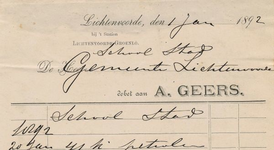 Lichtenvoorde, den 1 Jan 1892
bij 't Station
LICHTENVOORDE-GROENLO.
School Stad
De Gemeente Lichtenvoorde
debet aan A. GEERS.
School Stad
1892
20 Jan petrolen